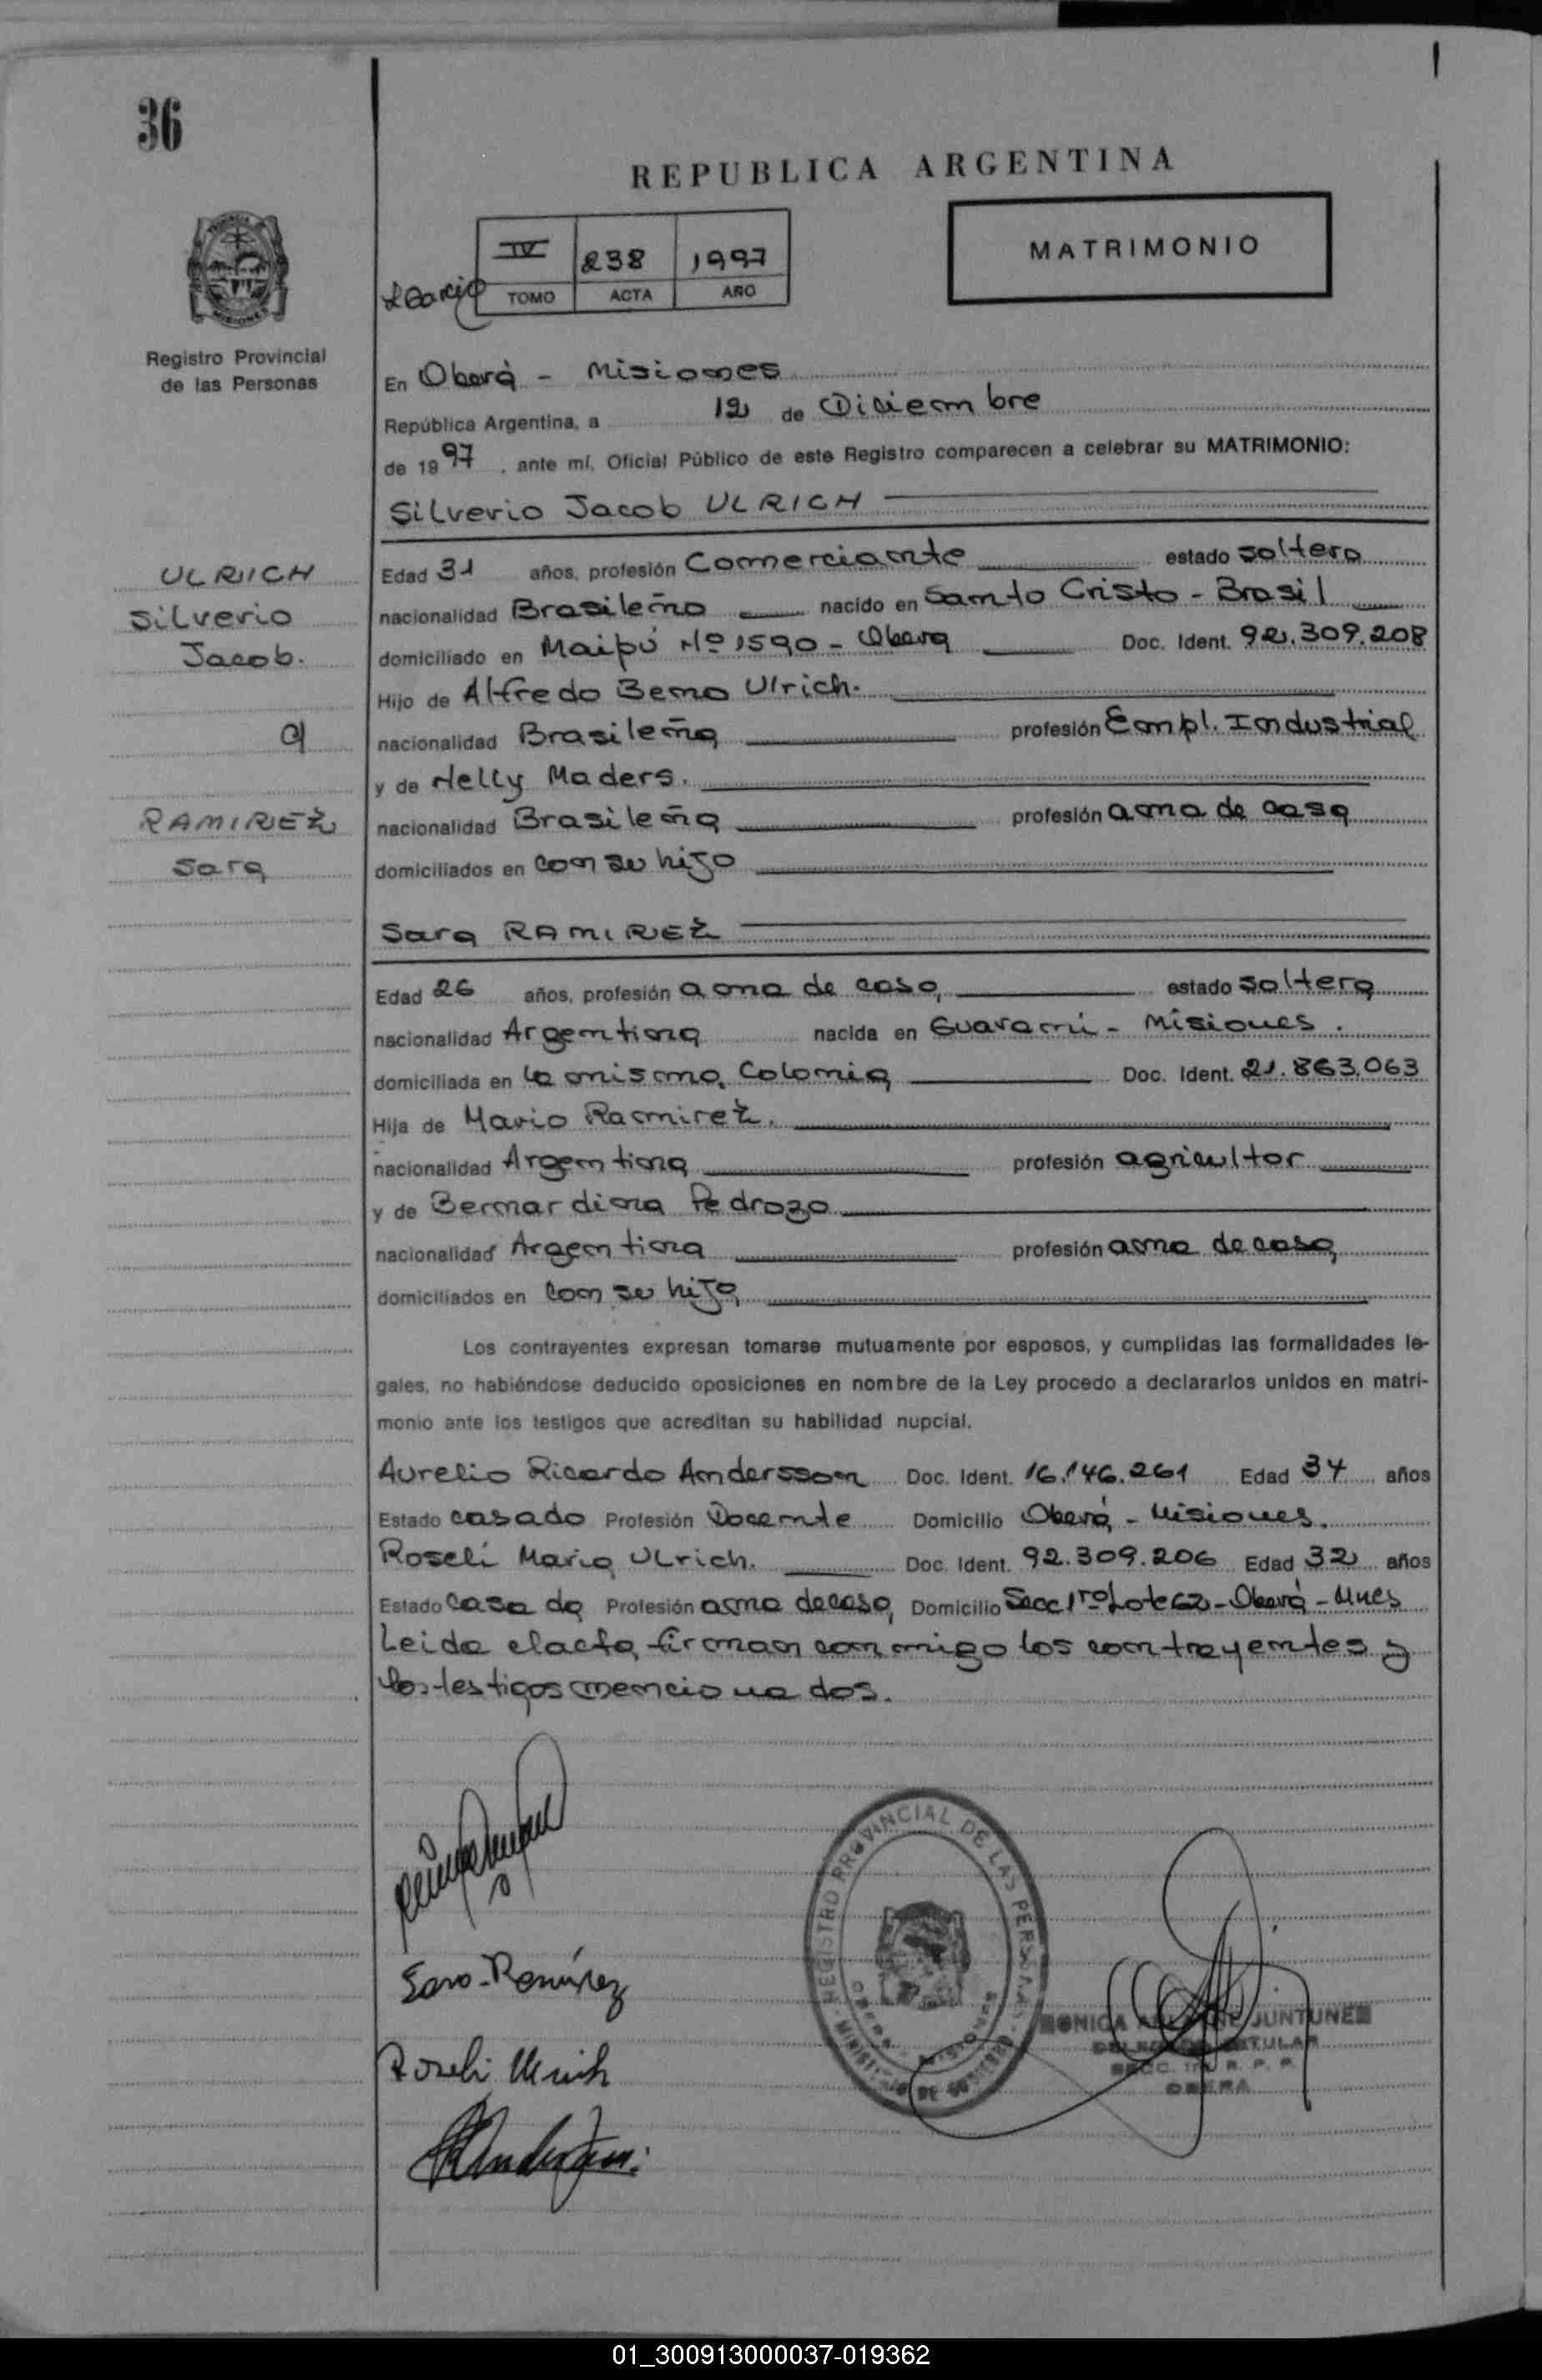 36
REPUBLICA ARGENTINA
IV 238 1997
TOMO ACTA AÑO
MATRIMONIO
Registro Provincial
de las Personas
En Oberá - Misiones
República Argentina, a 12 de Diciembre
de 1997, ante mí, Oficial Público de este Registro comparecen a celebrar su MATRIMONIO:
Silverio Jacob ULRICH
ULRICH
Silverio
Jacob.
Edad 31 años, profesión Comerciante estado soltero
nacionalidad Brasileño nacido en Santo Cristo - Brasil
domiciliado en Maipú Nº 1590 - Oberá Doc. Ident. 92.309.208
Hijo de Alfredo Beno Ulrich.
nacionalidad Brasileña profesión Empl. Industrial
y de Nelly Maders.
RAMIREZ
Sara
nacionalidad Brasileña profesión ama de casa
domiciliados en con su hijo
Sara RAMIREZ
Edad 26 años, profesión ama de casa estado soltera
nacionalidad Argentina nacida en Guaraní - Misiones.
domiciliada en la misma Colonia Doc. Ident. 21.863.063
Hija de Mario Ramirez.
nacionalidad Argentina profesión agricultor
y de Bernardina Pedrozo
nacionalidad Argentina profesión ama de casa
domiciliados en con su hija
Los contrayentes expresan tomarse mutuamente por esposos, y cumplidas las formalidades le-
gales, no habiéndose deducido oposiciones en nombre de la Ley procedo a declararlos unidos en matri-
monio ante los testigos que acreditan su habilidad nupcial.
Aurelio Ricardo Andersson Doc. Ident. 16.146.261 Edad 34 años
Estado casado Profesión Docente Domicilio Oberá - Misiones.
Roselí Maria Ulrich. Doc. Ident. 92.309.206 Edad 32 años
Estado casada Profesión ama de casa Domicilio Secc 1ra Lote 62 - Oberá - Mnes
Leida el acta, firman conmigo los contrayentes y
los testigos mencionados.
REGISTRO PROVINCIAL DE LAS PERSONAS
MINISTERIO DE GOBIERNO
OBERA - MISIONES
Sara Ramírez
Roseli Ulrich
MONICA JUNTUNEN
TITULAR
SECC. R. P. P.
OBERA
01_300913000037-019362